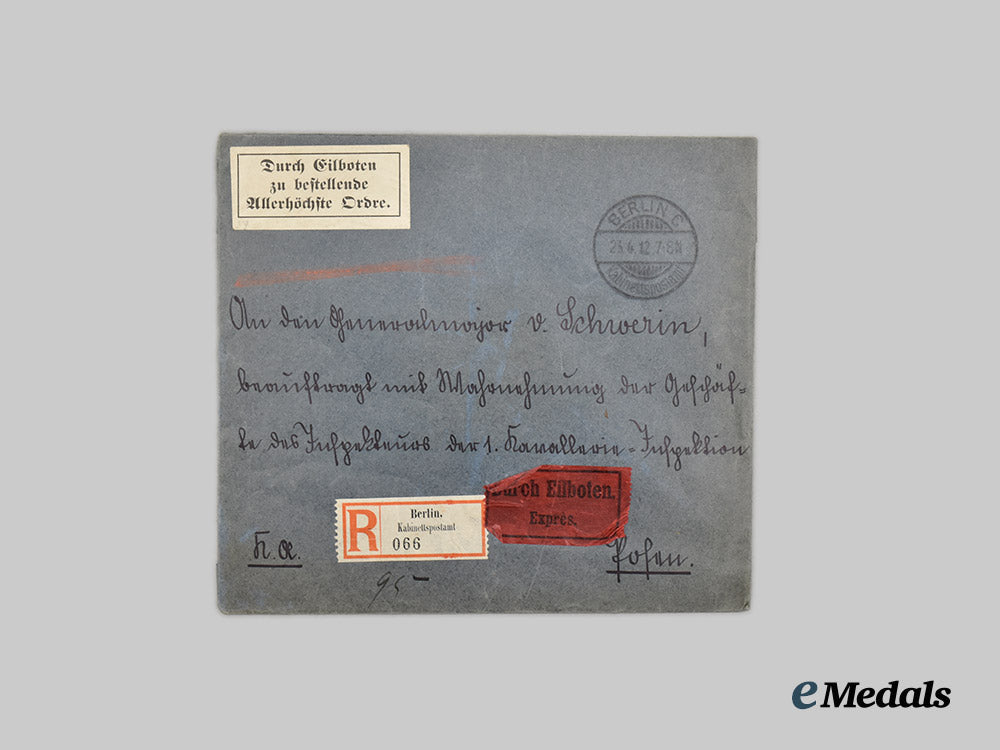 Durch Eilboten
zu bestellende
Allerhöchste Ordre.
BERLIN C
23.4.12.7-8N
Kabinettspostamt
An den Generalmajor v. Schwerin,
beauftragt mit Wahrnehmung der Geschäf-
te des Inspekteurs der 1. Kavallerie-Inspektion
Durch Eilboten.
Expres.
R
Berlin,
Kabinettspostamt
066
Posen.
95
eMedals